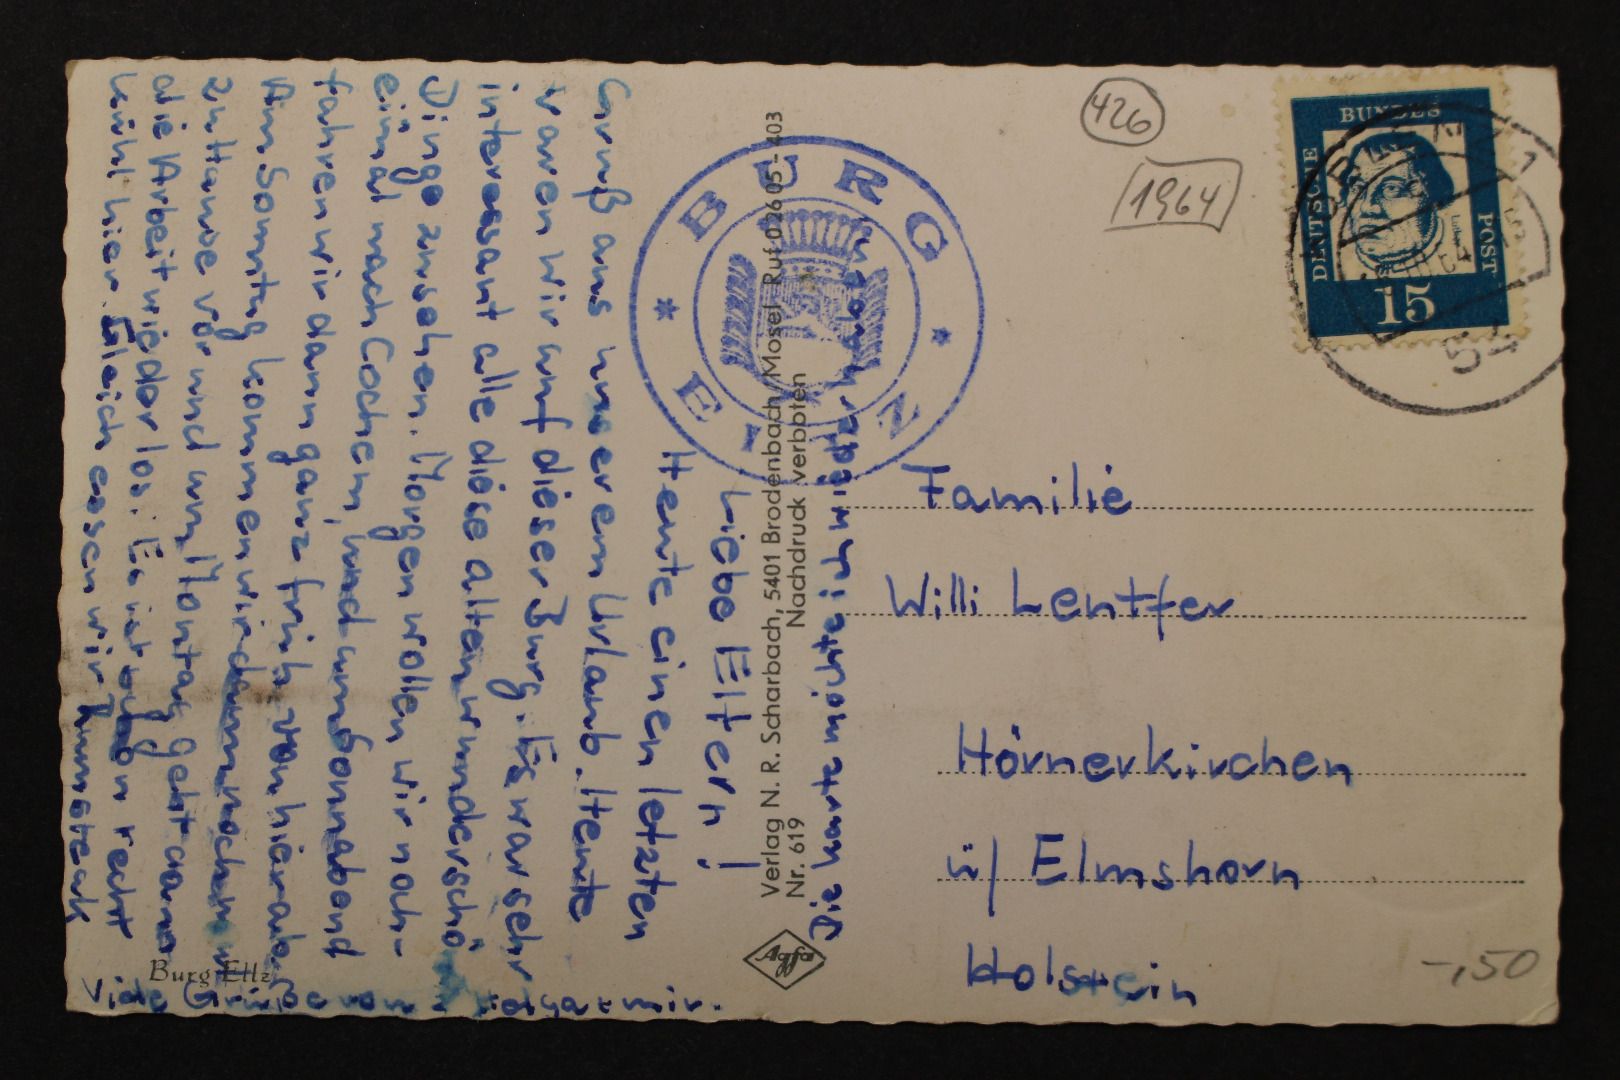 Liebe Eltern!
Heute einen letzten
Gruß aus unserem Urlaub. Heute
waren wir auf dieser Burg. Es war sehr
interessant alle diese alten wunderschö
Dinge zu sehen. Morgen wollen wir noch-
einmal nach Cochem, und am Sonnabend
fahren wir dann ganz früh von hier ab.
Am Sonntag kommen wir dann noch
zu Hause vor und am Montag geht dann
die Arbeit wieder los. Es ist schon recht
kühl hier. Gleich essen wir Rumsteak
Viele Grüße von mir.
Die Karten möchte ich wieder
Burg Eltz
Verlag N. R. Scharbach, 5401 Brodenbach/Mosel Ruf 02605-403
Nr. 619 Nachdruck verboten
Agfa
BURG
ELZ
426
1964
DEUTSCHE
BUNDES
POST
15
Familie
Willi Lentfer
Hörnerkirchen
ü/ Elmshorn
Holstein
-,50